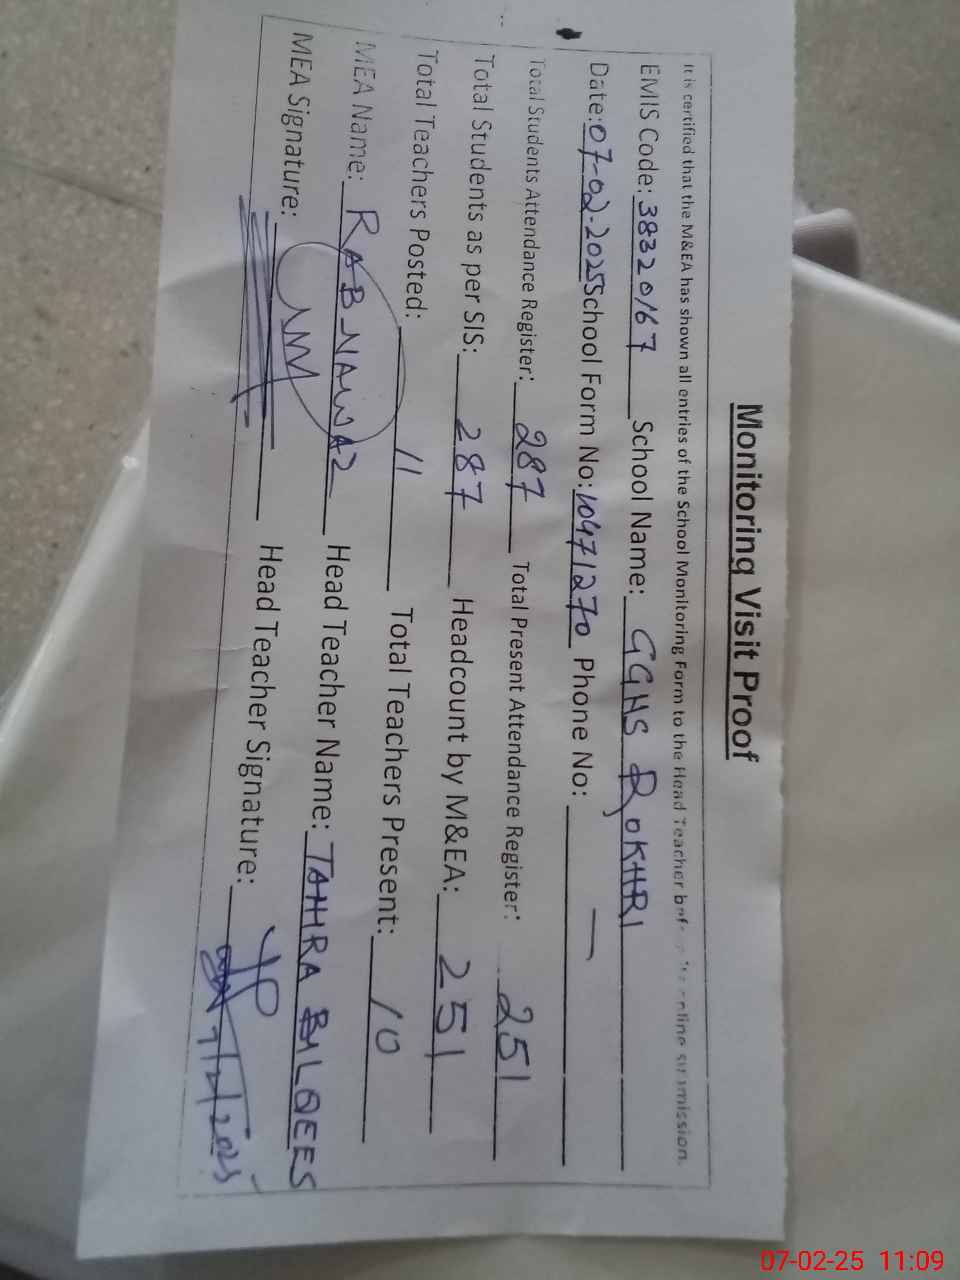 Monitoring Visit Proof
It is certified that the M&EA has shown all entries of the School Monitoring Form to the Head Teacher before online submission.
EMIS Code: 38320167 School Name: GGHS ROKHRI
Date: 07-02-2025 School Form No: 10471270 Phone No: —
Total Students Attendance Register: 287 Total Present Attendance Register: 251
Total Students as per SIS: 287 Headcount by M&EA: 251
Total Teachers Posted: 11 Total Teachers Present: 10
MEA Name: RAB NAWAZ Head Teacher Name: TAHIRA BILQEES
MEA Signature: Head Teacher Signature:
7/2/2025
07-02-25 11:09